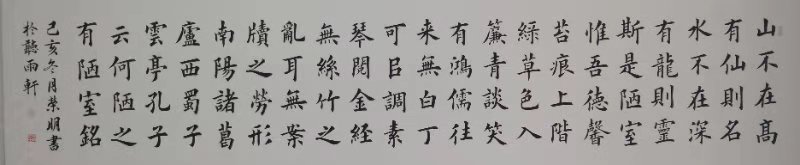 山不在高
有仙則名
水不在深
有龍則靈
斯是陋室
惟吾德馨
苔痕上階
綠草色入
簾青談笑
有鴻儒往
来無白丁
可㠯調素
琴閱金経
無絲竹之
亂耳無案
牘之勞形
南陽諸葛
廬西蜀子
雲亭孔子
云何陋之
有陋室銘
己亥冬月榮明書
於聽雨軒